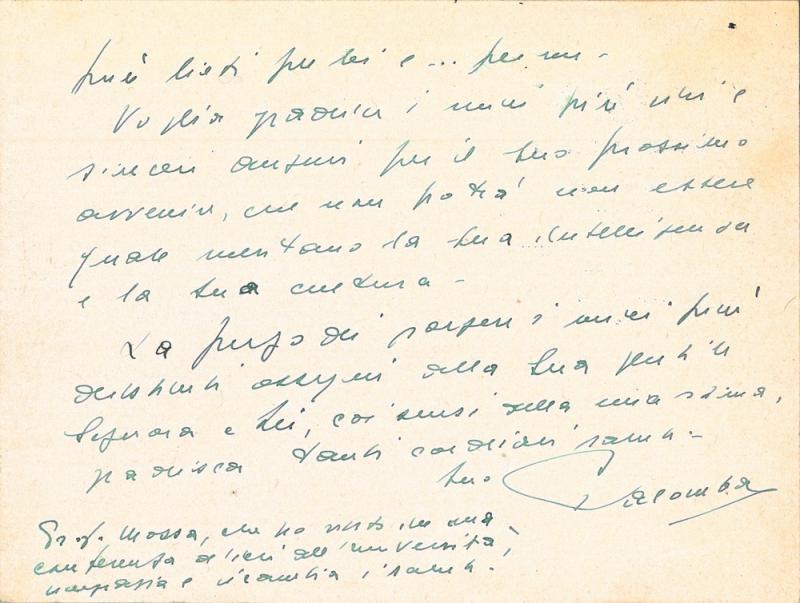 più lieti per lei e ... per me -
Voglia gradire i miei più vivi e
sinceri auguri per il suo prossimo
avvenire, che non potrà non essere
quale meritano la sua intelligenza
e la sua cultura -
La prego di porgere i miei più
distinti ossequi alla sua gentile
Signora e Lei, coi sensi della mia stima,
gradisca tanti cordiali saluti -
Suo Palomba
Prof. Mossa, che ho visto in una
conferenza d'ieri all'università,
ringrazia e ricambia i saluti -